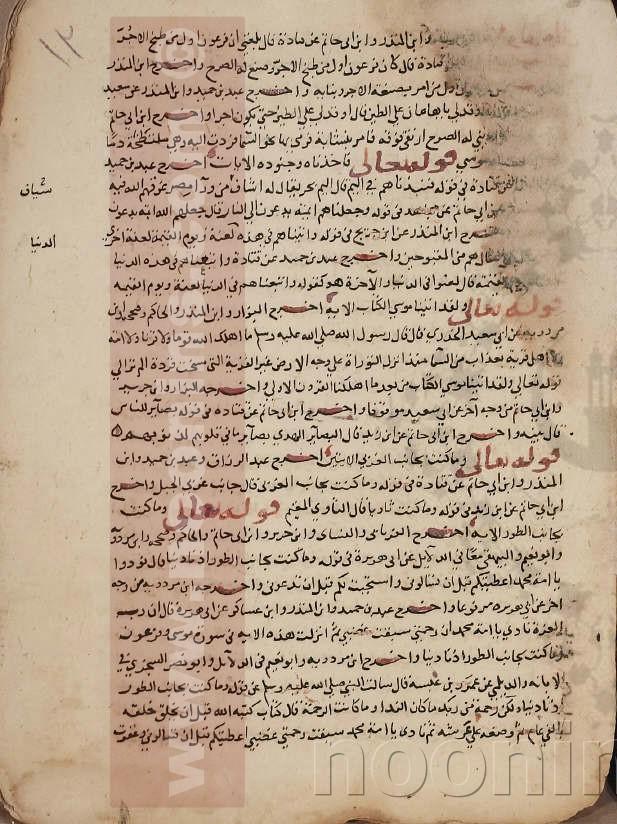 ١٢
وابن المنذر وابن ابي حاتم عن قتادة قال بلغني ان فرعون اول من طبخ الاجر
قتادة قال كان فرعون اول من طبخ الاجر وصنع له الصرح واخرج ابن المنذر
اول من امر بصنعة الاجر وبنا به واخرج عبد بن حميد وابن المنذر عن سعيد
فاوقد لي ياهامان على الطين قال اوقد لي على الطين حتى يكون اجرا واخرج ابن ابي حاتم
بني له الصرح ارتقى فوقه فامر بنشابة فرمى بها نحو السما فردت اليه وهي متلطخة دما
موسى قوله تعالى فاخذناه وجنوده الايات اخرج عبد بن حميد
عن قتادة في قوله فنبذناهم في اليم قال اليم بحر يقال له اساف من ورا مصر غرقهم الله فيه
شياف
ابن ابي حاتم عن مجاهد في قوله وجعلناهم ائمة يدعون الى النار قال جعلهم الله ائمة يدعون
اخرج ابن المنذر عن ابن جريج في قوله واتبعناهم في هذه لعنة ويوم القيمة لعنة اخرى
الدنيا
قال هم من المقبوحين واخرج عبد بن حميد عن قتادة واتبعناهم في هذه الدنيا
القيمة قال لعنوا في الدنيا والآخرة هو كقوله واتبعناهم في الدنيا لعنة ويوم القيمة
قوله تعالى ولقد اتينا موسى الكتاب الاية اخرج البزار وابن المنذر والحاكم وصححه وابن
مردويه عن ابي سعيد الخدري قال قال رسول الله صلى الله عليه وسلم ما اهلك الله قوما ولا قرنا ولا امة
ولا اهل قرية بعذاب من السما منذ انزل التوراة على وجه الارض غير القرية التي مسخت قردة الم تر الى
قوله تعالى ولقد اتينا موسى الكتاب من بعد ما اهلكنا القرون الاولى واخرجه البزار وابن جرير
وابن ابي حاتم من وجه آخر عن ابي سعيد موقوفا واخرج ابن ابي حاتم عن قتادة في قوله بصائر للناس
قال بينه واخرج ابن ابي حاتم عن ابن زيد قال البصائر الهدى بصائر ما في قلوبهم
قوله تعالى وما كنت بجانب الغربي الايتين اخرج عبد الرزاق وعبد بن حميد وابن
المنذر وابن ابي حاتم عن قتادة في قوله وما كنت بجانب الغربي قال جانب غربي الجبل واخرج
ابن ابي حاتم عن ابن زيد في قوله وما كنت ثاويا قال الثاوي المقيم قوله تعالى وما كنت
بجانب الطور الاية اخرج الفريابي والنسائي وابن جرير وابن ابي حاتم والحاكم وصححه وابن مردويه
وابو نعيم والبيهقي معا في الدلايل عن ابي هريرة في قوله وما كنت بجانب الطور اذ نادينا قال نودوا
يا امة محمد اعطيتكم قبل ان تسالوني واستجبت لكم قبل ان تدعوني واخرجه ابن مردويه من وجه
اخر عن ابي هريرة مرفوعا واخرج عبد بن حميد وابن المنذر وابن عساكر عن ابي هريرة قال ان رب
العزة نادى يا امة محمد ان رحمتي سبقت غضبي ثم انزلت هذه الاية في سورة موسى وفرعون
وما كنت بجانب الطور اذ نادينا واخرج ابن مردويه وابو نعيم في الدلايل وابو نصر السجزي في
الابانه والديلمي عن عمرو بن عبسة قال سالت النبي صلى الله عليه وسلم عن قوله وما كنت بجانب الطور
اذ نادينا ولكن رحمة من ربك ما كان الندا وما كانت الرحمة قال كتاب كتبه الله قبل ان يخلق خلقه
بالفي عام ثم وضعه على عرشه ثم نادى يا امة محمد سبقت رحمتي غضبي اعطيتكم قبل ان تسالوني وغفرت
noonin